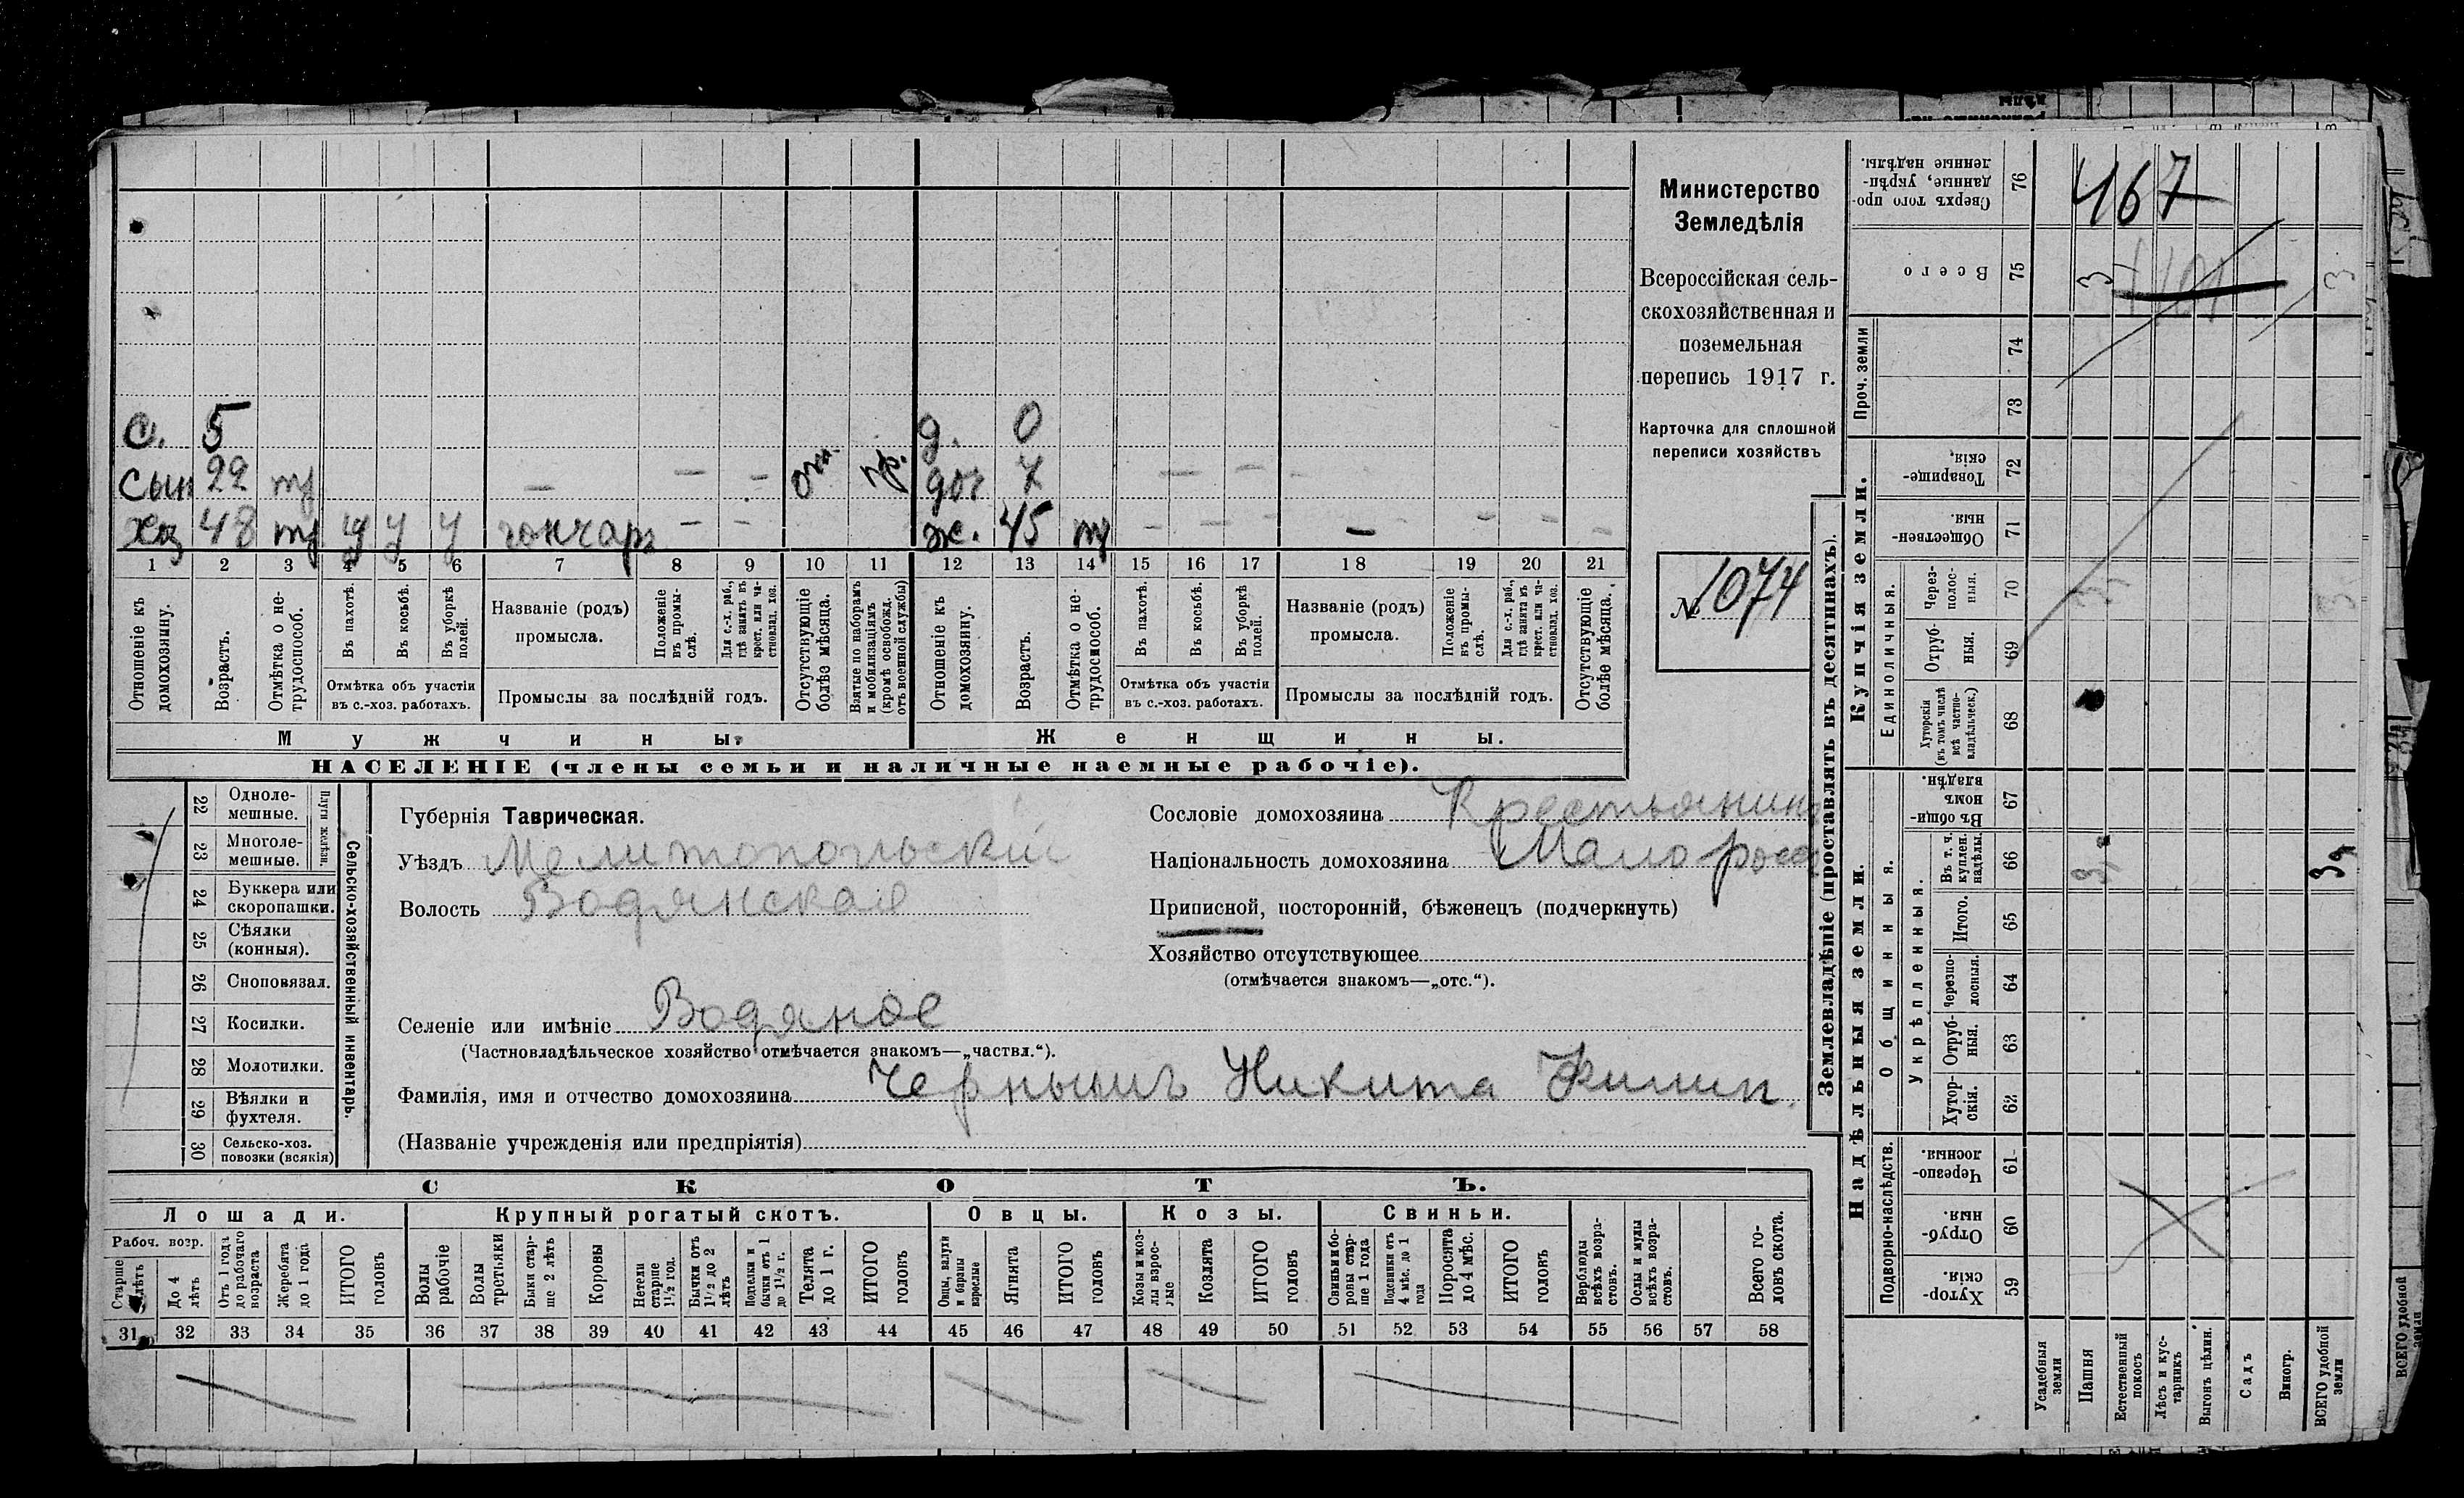 с. 5 д. 0
сын 22 тр — — — отс. пр. доч 7 — —
хоз 48 тр у у у гончаръ — — ж. 45 тр — — — — — — —
1 2 3 4 5 6 7 8 9 10 11 12 13 14 15 16 17 18 19 20 21
Отношеніе къ домохозяину.
Возрастъ.
Отмѣтка о не-трудоспособ.
Въ пахотѣ.
Въ косьбѣ.
Въ уборкѣ полей.
Отмѣтка объ участіи
въ с.-хоз. работахъ.
Названіе (родъ)
промысла.
Положеніе въ промы-слѣ.
Для с.-х. раб., гдѣ занятъ въ крест. или ча-стновлад. хоз.
Промыслы за послѣдній годъ.
Отсутствующіе болѣе мѣсяца.
Взятые по наборамъ и мобилизаціямъ (кромѣ освобожд. отъ военной службы)
Отношеніе къ домохозяину.
Возрастъ.
Отмѣтка о не-трудоспособ.
Въ пахотѣ.
Въ косьбѣ.
Въ уборкѣ полей.
Отмѣтка объ участіи
въ с.-хоз. работахъ.
Названіе (родъ)
промысла.
Положеніе въ промы-слѣ.
Для с.-х. раб., гдѣ занята въ крест. или ча-стновлад. хоз.
Промыслы за послѣдній годъ.
Отсутствующіе болѣе мѣсяца.
Мужчины. Женщины.
НАСЕЛЕНІЕ (члены семьи и наличные наемные рабочіе).
Министерство
Земледѣлія
Всероссійская сель-
скохозяйственная и
поземельная
перепись 1917 г.
Карточка для сплошной
переписи хозяйствъ
№ 1074
22 Одноле-
мешные.
23 Многоле-
мешные.
Плуги желѣзн.
24 Буккера или
скоропашки.
25 Сѣялки
(конныя).
26 Сноповязал.
27 Косилки.
28 Молотилки.
29 Вѣялки и
фухтеля.
30 Сельско-хоз.
повозки (всякія)
Сельско-хозяйственный инвентарь.
Губернія Таврическая.
Уѣздъ Мелитопольскій
Волость Водянская
Селеніе или имѣніе Водяное
(Частновладѣльческое хозяйство отмѣчается знакомъ—„частвл.“).
Фамилія, имя и отчество домохозяина Чернышъ Никита
(Названіе учрежденія или предпріятія)
Сословіе домохозяина Крестьянинъ
Національность домохозяина Малоросс
Приписной, посторонній, бѣженецъ (подчеркнуть)
Хозяйство отсутствующее
(отмѣчается знакомъ—„отс.“).
СКОТЪ.
Лошади. Крупный рогатый скотъ. Овцы. Козы. Свиньи.
Рабоч. возр.
Старше лѣтъ
До 4 лѣтъ
Отъ 1 года до рабочаго возраста
Жеребята до 1 года
ИТОГО головъ
Волы рабочіе
Волы третьяки
Быки стар-ше 2 лѣтъ
Коровы
Нетели старше 1½ год.
Бычки отъ 1½ до 2 лѣтъ
Подтелки и бычки отъ 1 до 1½ г.
Телята до 1 г.
ИТОГО головъ
Овцы, валухи и бараны взрослые
Ягнята
ИТОГО головъ
Козы и коз-лы взрос-лые
Козлята
ИТОГО головъ
Свиньи и бо-ровы стар-ше 1 года
Подсвинки отъ 4 мѣс. до 1 года
Поросята до 4 мѣс.
ИТОГО головъ
Верблюды всѣхъ возра-стовъ.
Ослы и мулы всѣхъ возра-стовъ.
Всего го-ловъ скота.
31 32 33 34 35 36 37 38 39 40 41 42 43 44 45 46 47 48 49 50 51 52 53 54 55 56 57 58
Землевладѣніе (проставлять въ десятинахъ).
Надѣльныя земли. Купчія земли.
Подворно-наслѣдств.
Общинныя.
Укрѣпленныя.
Единоличныя.
Проч. земли
Сверхъ того про-данные, укрѣп-ленные надѣлы. 76 467
Всего 75 3 3
74
73
Товарище-скія. 72
Обществен-ныя. 71
Через-полос-ныя. 70
Отруб-ныя. 69
Хуторскія (въ томъ числѣ всѣ частно-владѣльческ.) 68
Въ общи-номъ владѣн. 67
Въ т. ч. куплен. надѣлы. 66
Итого. 65
Черезпо-лосныя. 64
Отруб-ныя. 63
Хутор-скія. 62
Черезпо-лосныя. 61
Отруб-ныя. 60
Хутор-скія. 59
Усадебныя земли
Пашня
Естественный покосъ
Лѣсъ и кус-тарникъ
Выгонъ цѣлин.
Садъ
Виногр.
ВСЕГО удобной земли
ВСЕГО удобной земли